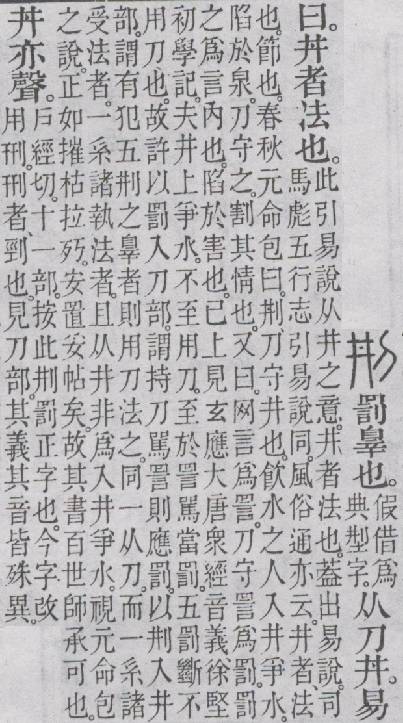 㓝罰辠也。假借爲典型字。从刀井。易
曰。井者法也。此引易說从井之意。井者法也。葢出易說。司
馬彪五行志引易說同。風俗通亦云。井者、法
也。節也。春秋元命包曰。㓝、刀守井也。飲水之人入井爭水。
陷於泉。刀守之。割其情也。又曰。网言爲詈。刀守詈爲罰。罰
之爲言內也。陷於害也。已上見玄應大唐衆經音義徐堅
初學記。夫井上爭水。不至用刀。至於詈罵當罰。五罰斷不
用刀也。故許以罰入刀部。謂持刀罵詈則應罰。以㓝入井
部。謂有犯五㓝之辠者則用刀法之。同一从刀。而一系諸
受法者。一系諸執法者。且从井非爲入井爭水。視元命包
之說。正如摧枯拉朽。安置妥帖矣。故其書百世師承可也。
井亦聲。戶經切。十一部。按此㓝罰正字也。今字改
用刑。刑者、剄也。見刀部。其義其音皆殊異。